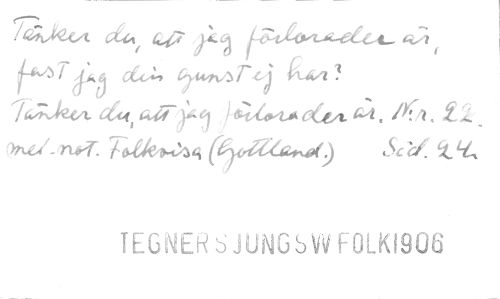 Tänker du, att jag förlorader är,
fast jag din gunst ej har?
Tänker du, att jag förlorader är. N:r. 22.
mel. not. Folkvisa (Gottland.) Sid. 24.
TEGNER SJUNGSWFOLK1906